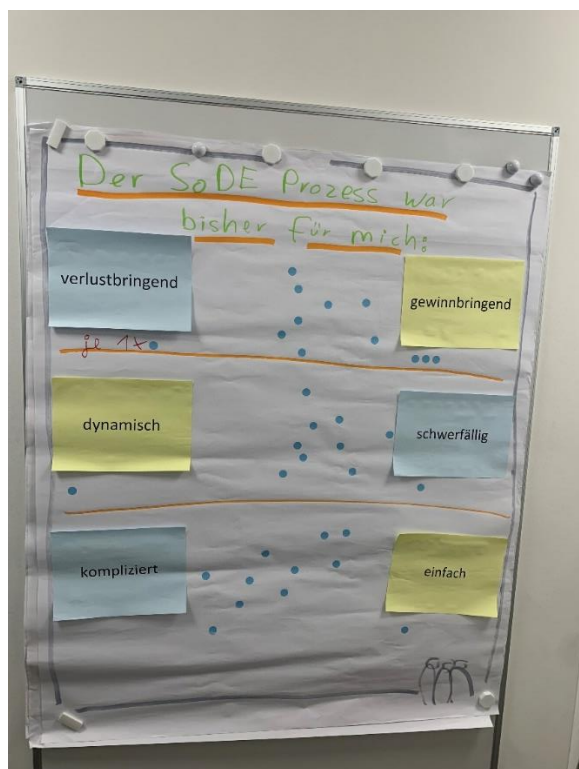 Der SoDE Prozess war
bisher für mich:
verlustbringend
gewinnbringend
je 1x
dynamisch
schwerfällig
kompliziert
einfach